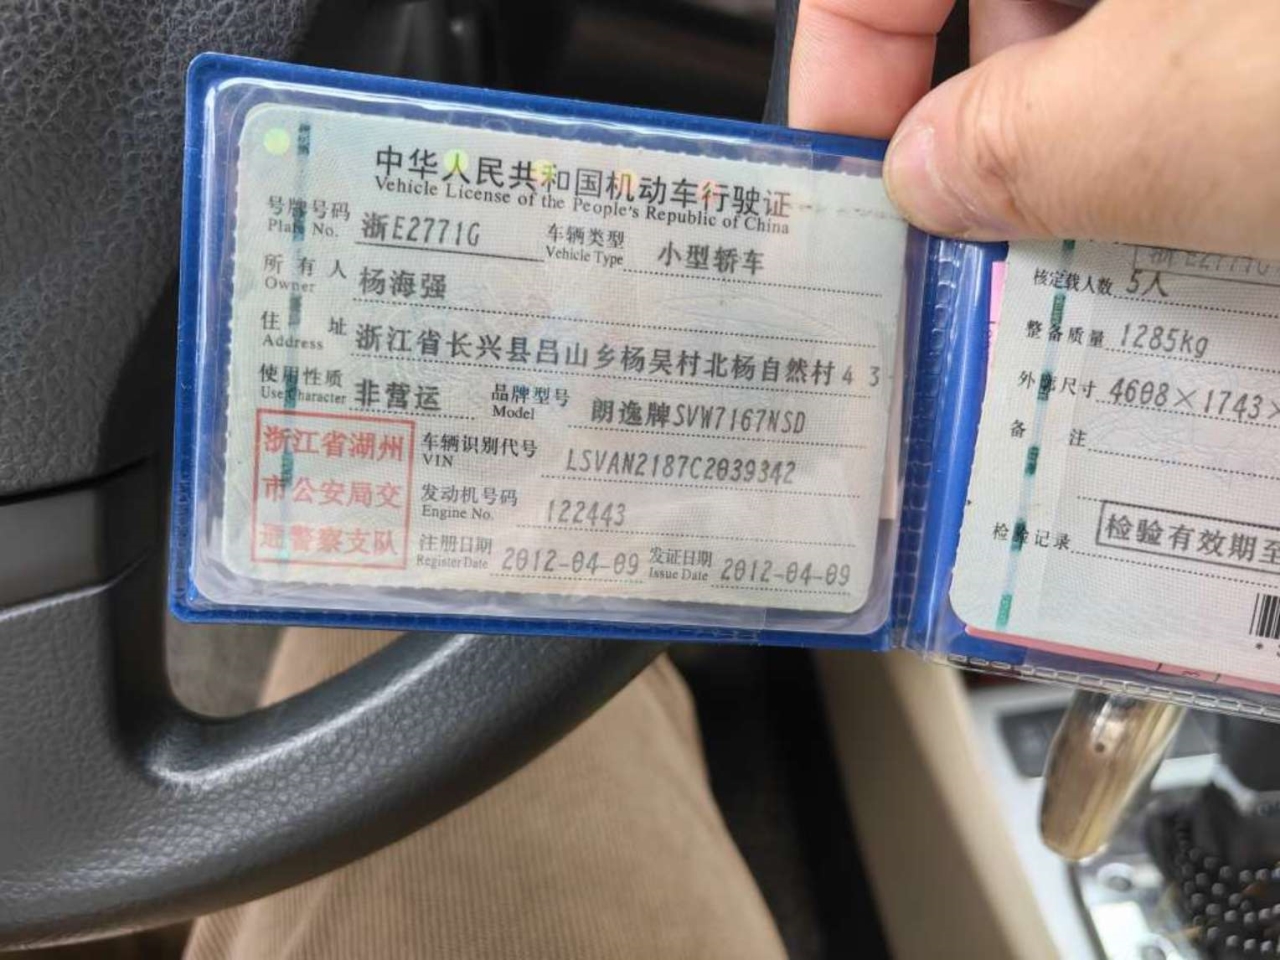 中华人民共和国机动车行驶证
Vehicle License of the People's Republic of China
号牌号码 浙E2771G 车辆类型 小型轿车
Plate No. Vehicle Type
所有人 杨海强
Owner
住址 浙江省长兴县吕山乡杨吴村北杨自然村43-
Address
使用性质 非营运 品牌型号 朗逸牌SVW7167NSD
Use Character Model
浙江省湖州
市公安局交
通警察支队
车辆识别代号 LSVAN2187C2039342
VIN
发动机号码 122443
Engine No.
注册日期 2012-04-09 发证日期 2012-04-09
Register Date Issue Date
浙E2771G
核定载人数 5人
整备质量 1285kg
外廓尺寸 4608×1743×
备注
检验记录 检验有效期至